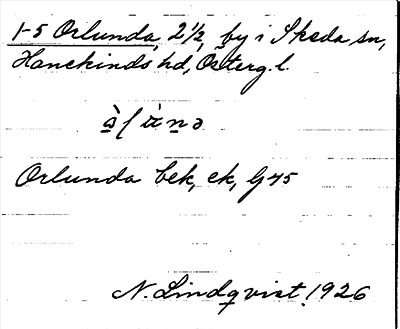 1-5 Orlunda, 2 1/2, by i Skeda sn,
Hanekinds hd, Österg. l.
Orlunda bek, ek, G 45
N. Lindqvist 1926